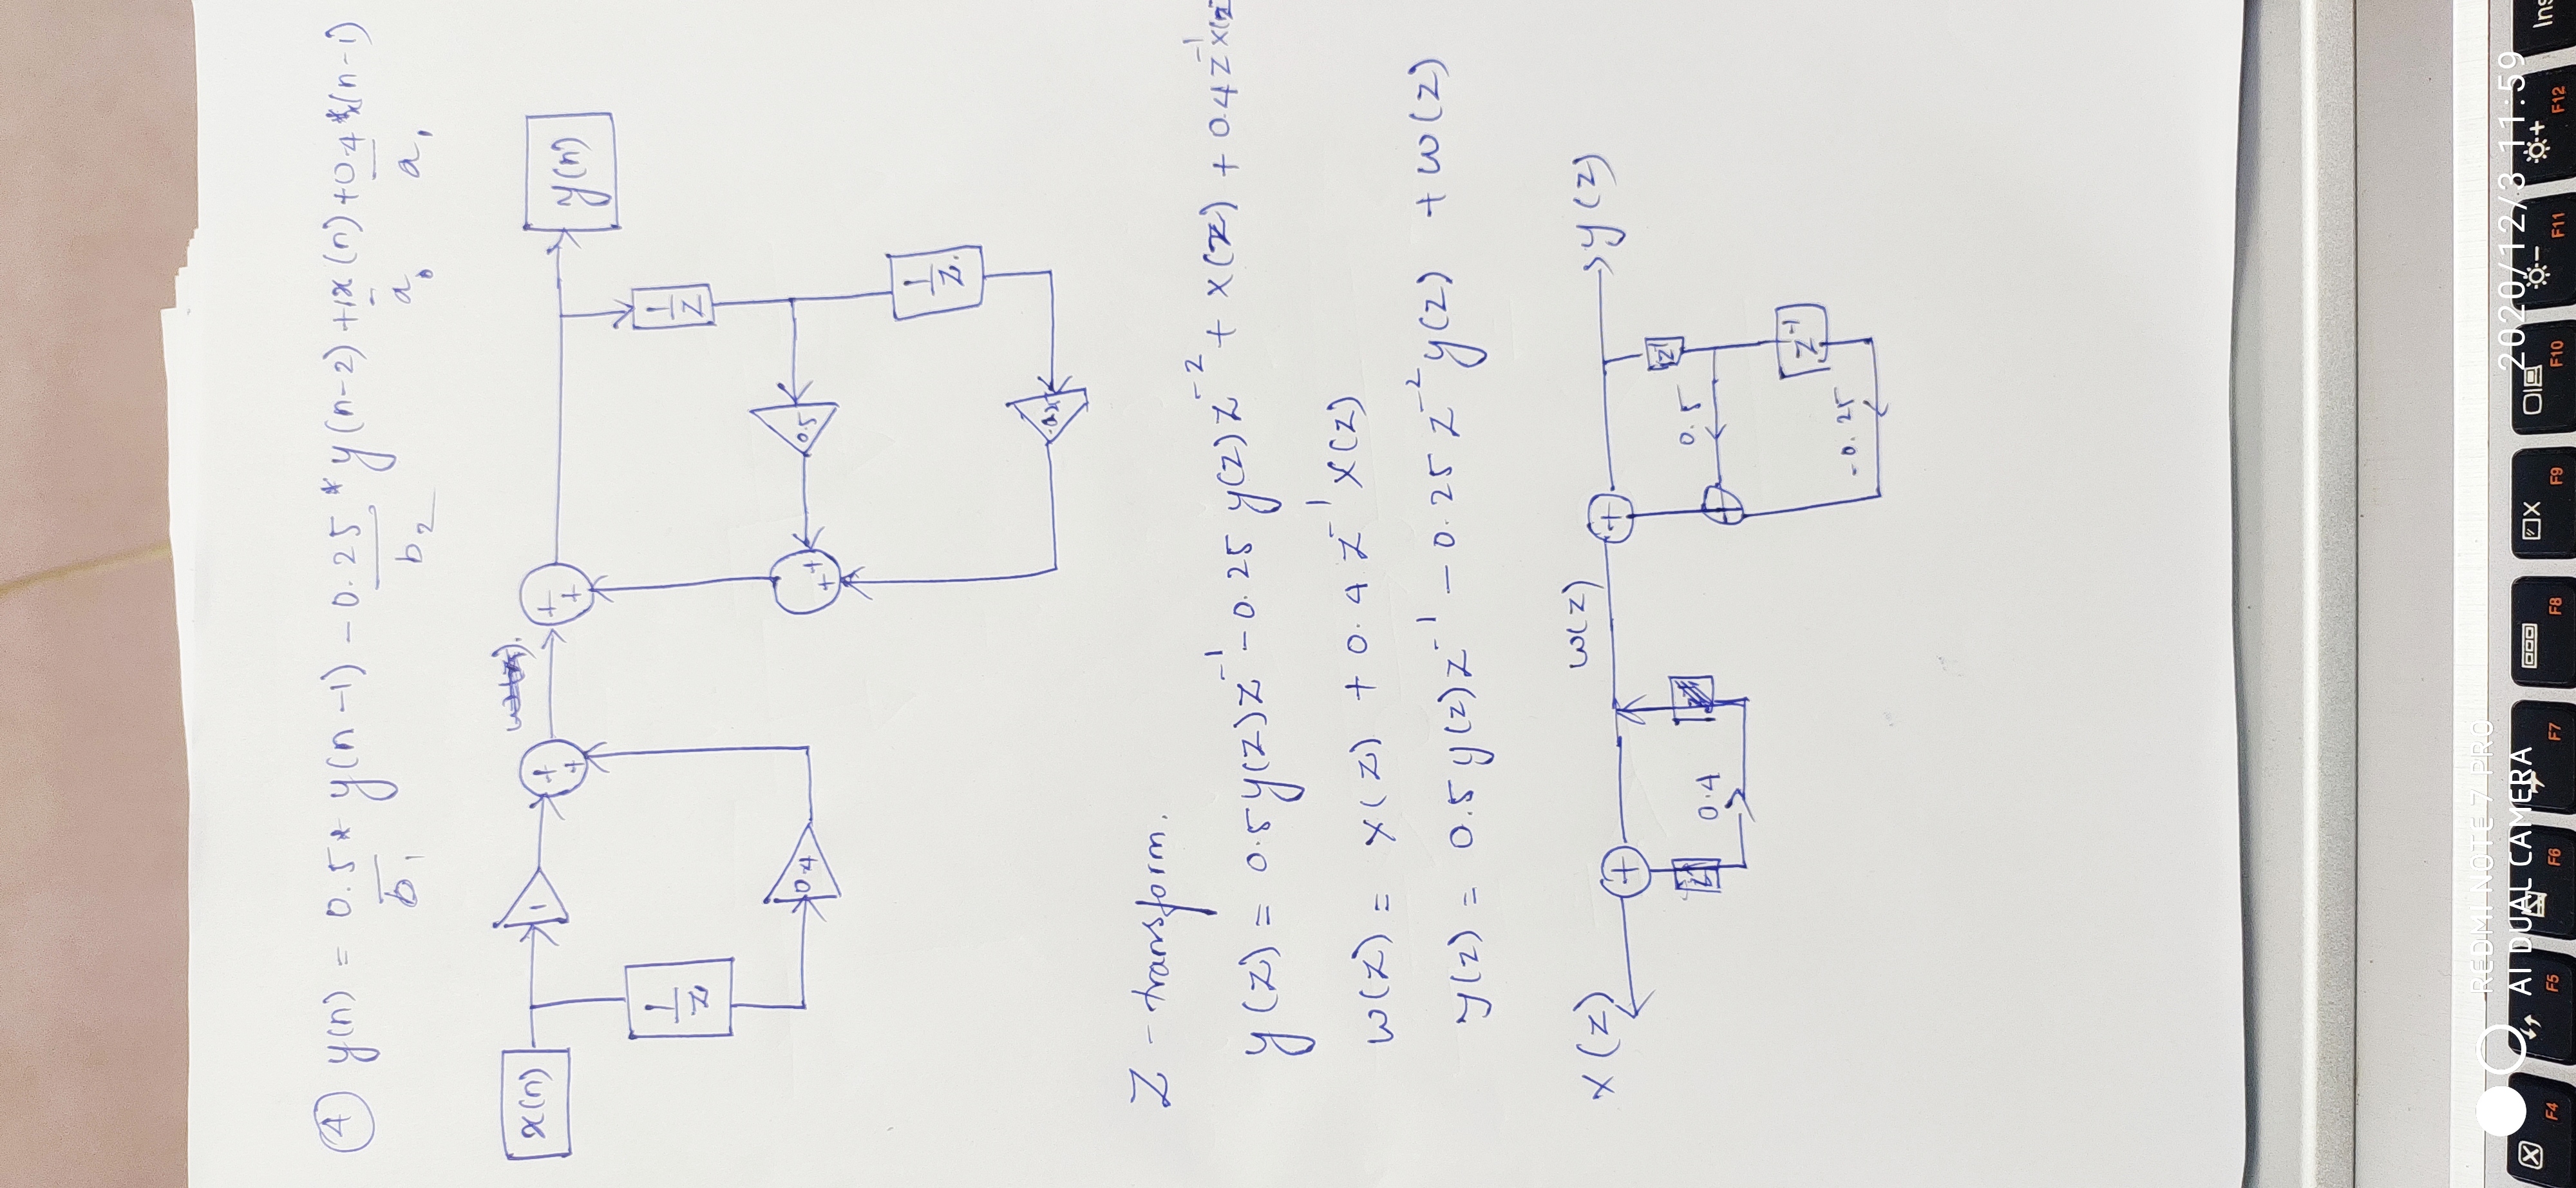 ④ y(n) = 0.5* y(n-1) - 0.25 * y(n-2) + 1x(n) + 0.4*x(n-1)
b₁ b₂ a₀ a₁
x(n) 1 + + + + y(n)
1/z 1/z
0.4 + + 0.5
1/z
Z - transform.
y(z) = 0.5y(z)z⁻¹ - 0.25 y(z)z⁻² + x(z) + 0.4z⁻¹x(z
w(z) = x(z) + 0.4 z⁻¹ x(z)
y(z) = 0.5y(z)z⁻¹ - 0.25 z⁻² y(z) + w(z)
x(z) + w(z) + y(z)
z⁻¹
0.4 + 0.5
z⁻¹
-0.25
REDMI NOTE 7 PRO
AI DUAL CAMERA
2020/12/3 11:59
F4 F5 F6 F7 F8 F9 F10 F11 F12 Ins